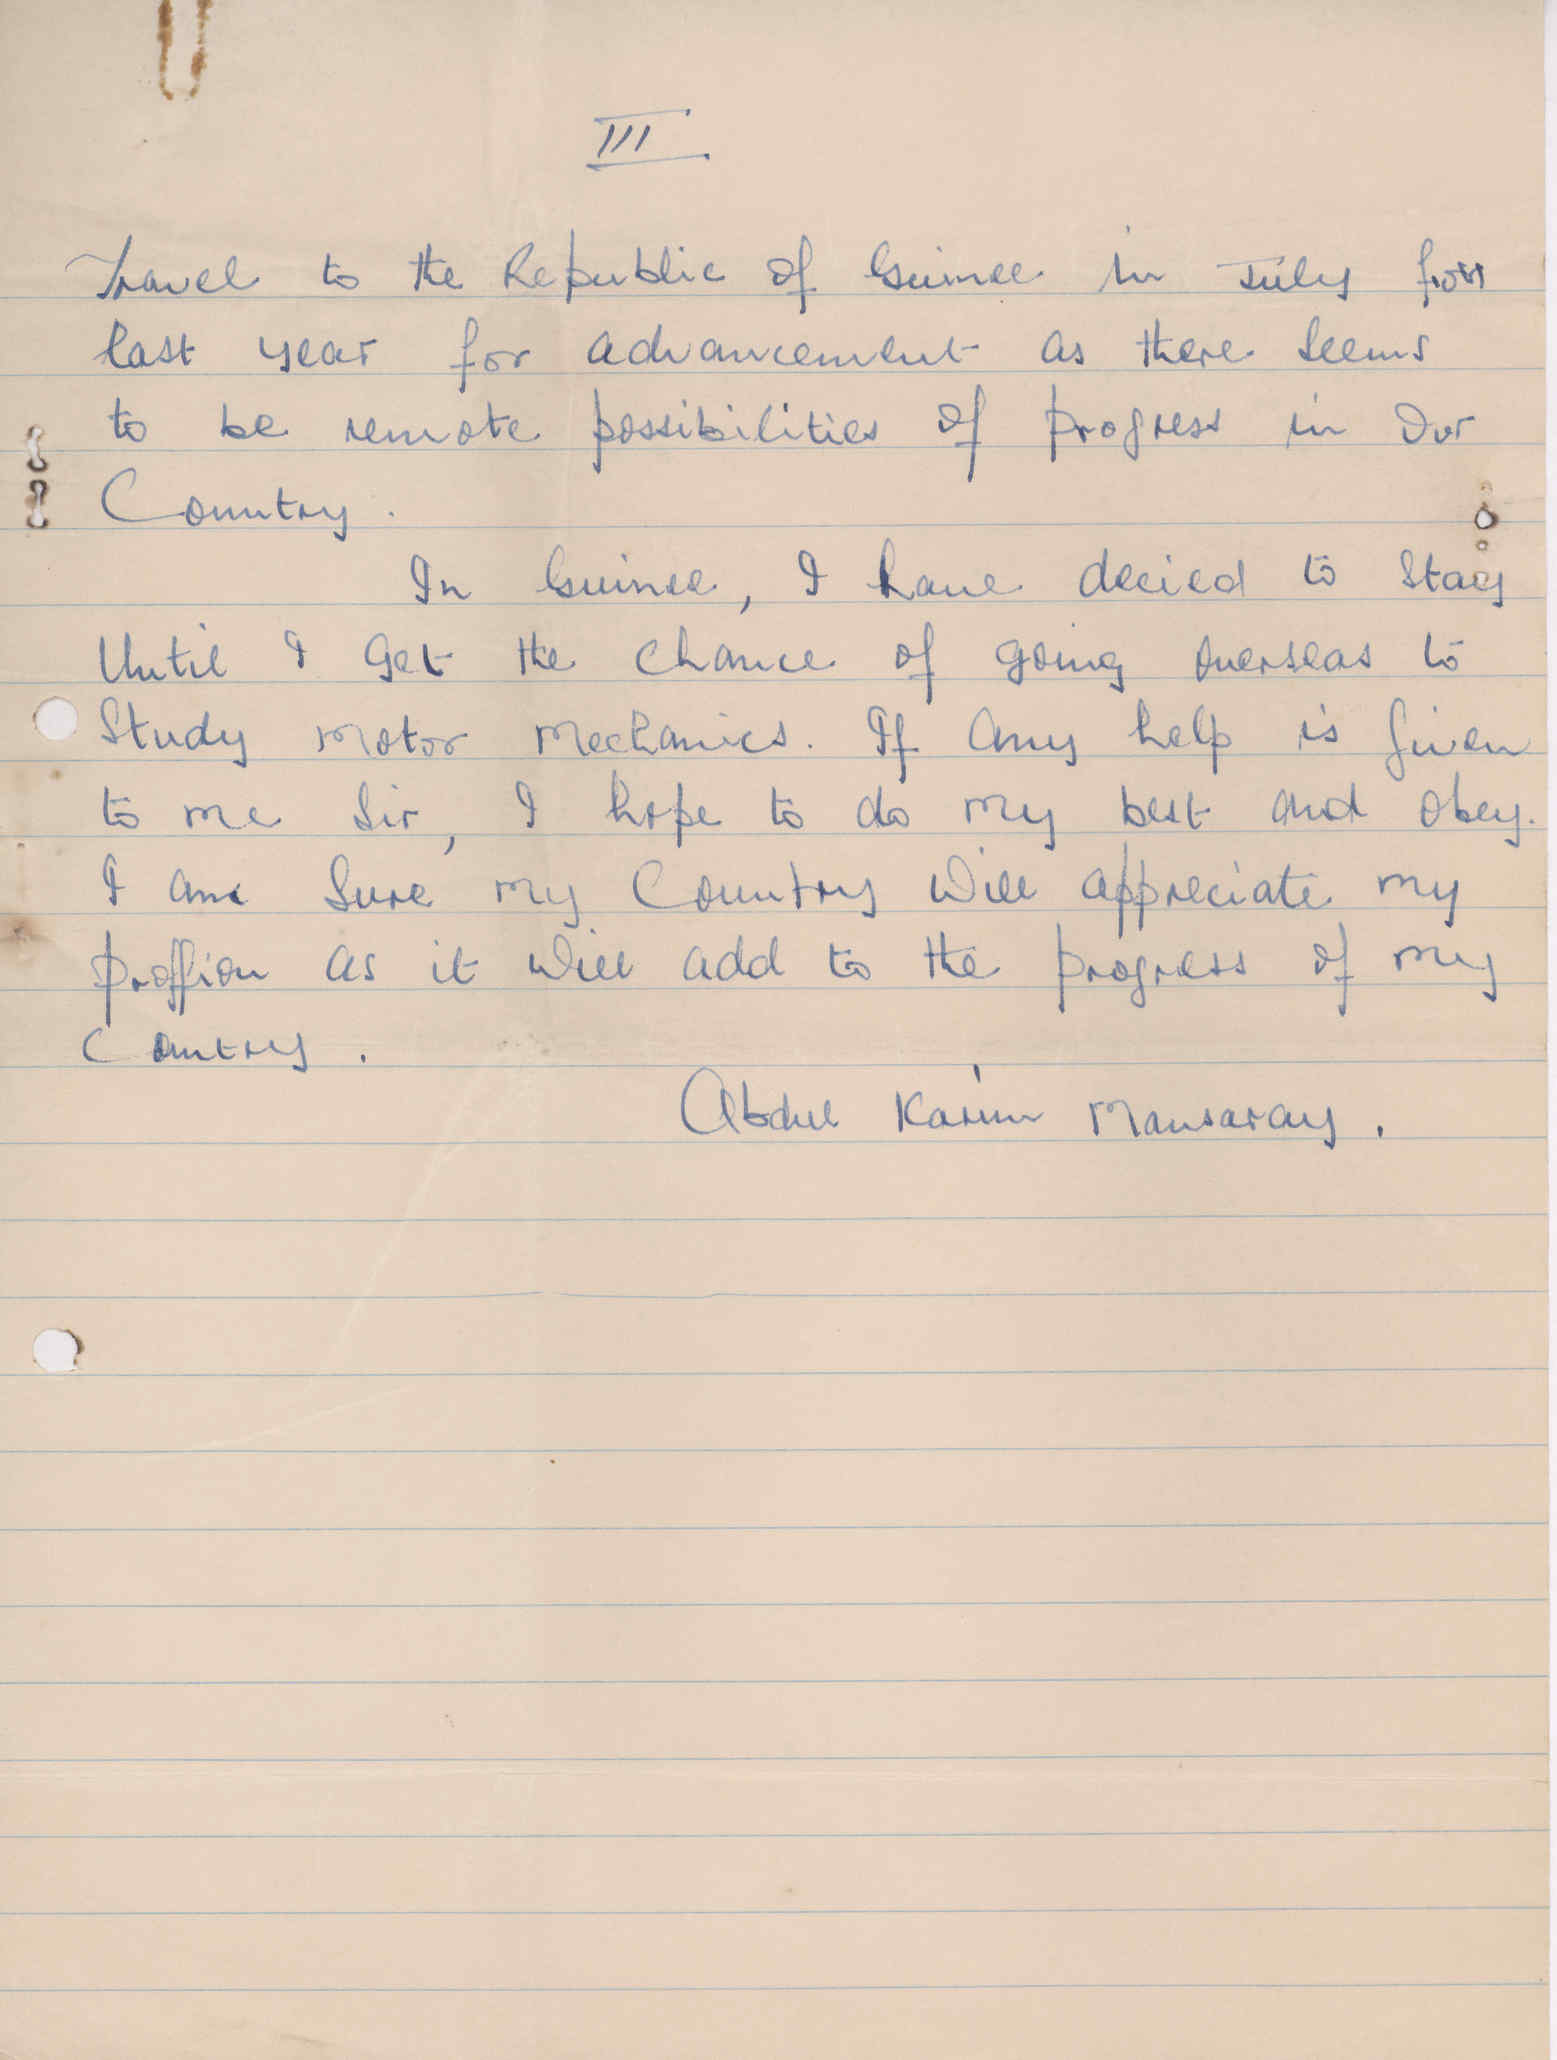 III
Travel to the Republic of Guinee in July from
last year for advancement as there seems
to be remote possibilities of progress in Our
Country.
In Guinee, I have decied to stay
Until I get the chance of going overseas to
Study Motor Mechanics. If any help is given
to me Sir, I hope to do my best and obey.
I am Sure my Country will appreciate my
proffion as it will add to the progress of my
Country.
Abdul Karim Mansaray.